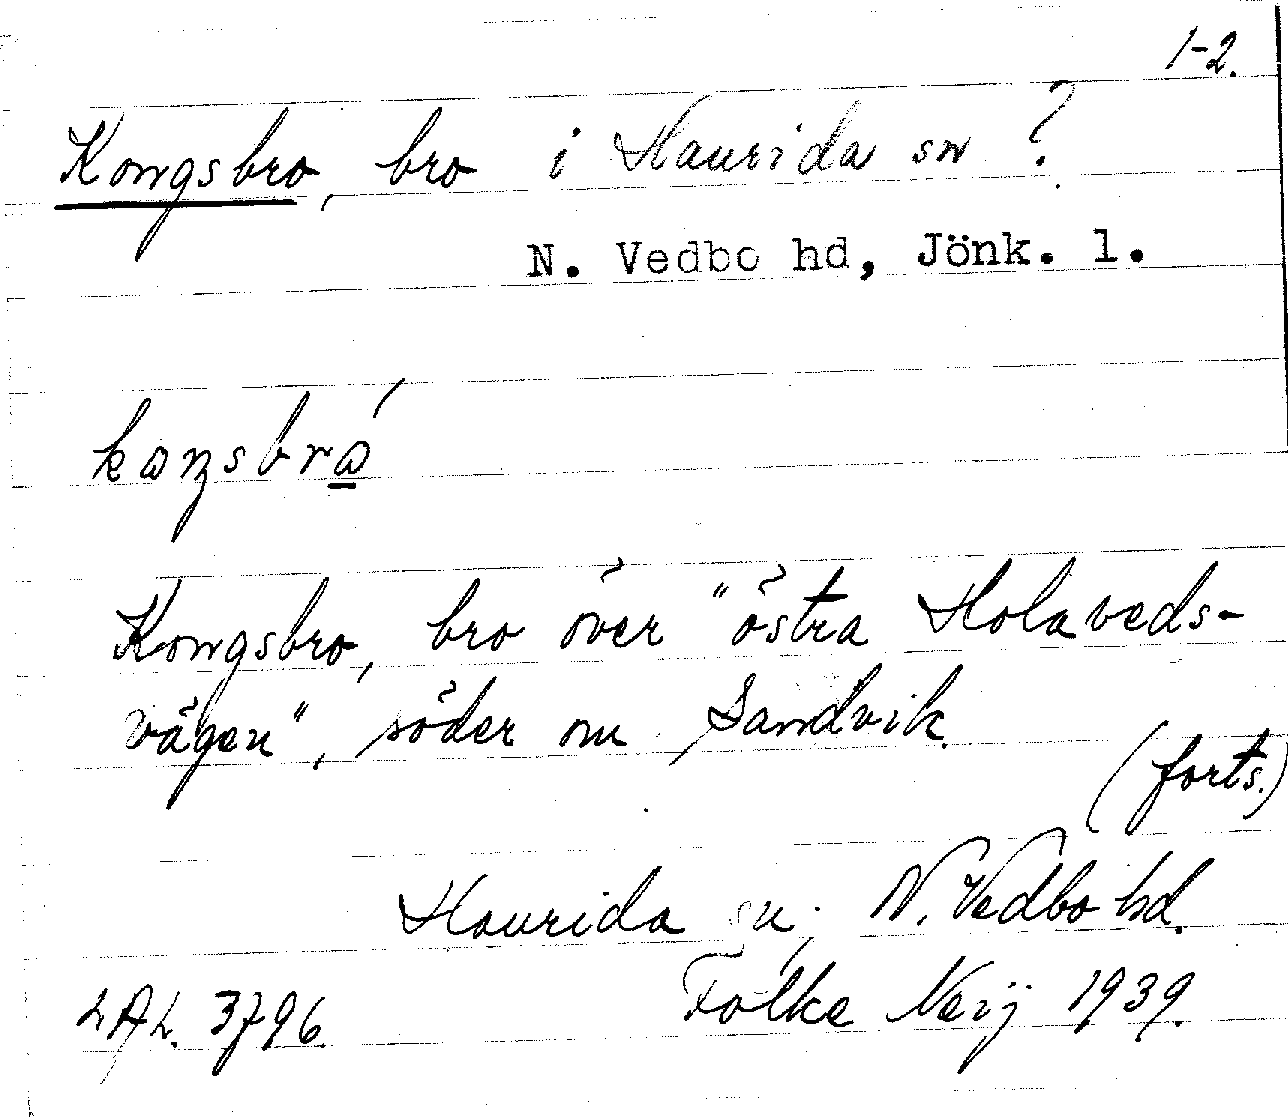 1-2.
Kongsbro, bro i Haurida sn ?
N. Vedbo hd, Jönk. l.
Kongsbro, bro över "östra Holaveds-
vägen", söder om Sandvik.
(forts.)
Haurida sn, N. Vedbo hd.
LAL. 3796. Folke Neij 1939.